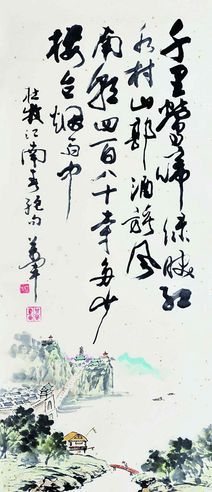 千里莺啼绿映红
水村山郭酒旗风
南朝四百八十寺多少
楼台烟雨中
杜牧江南春绝句